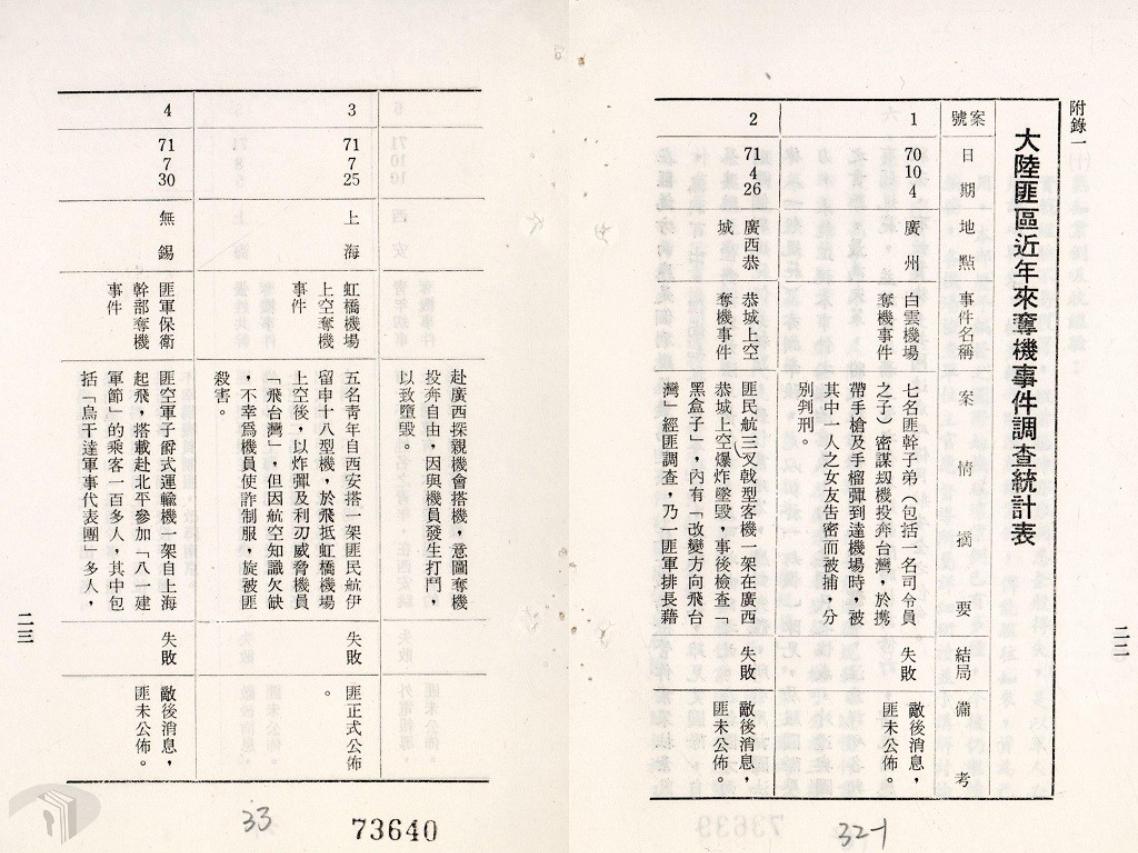 附錄一
大陸匪區近年來奪機事件調查統計表
案號
日期
地點
事件名稱
案情摘要
結局
備考
1
70
10
4
廣州
白雲機場
奪機事件
七名匪幹子弟（包括一名司令員
之子）密謀刼機投奔台灣，於携
帶手槍及手榴彈到達機場時，被
其中一人之女友告密而被捕，分
別判刑。
失敗
敵後消息，
匪未公佈。
2
71
4
26
廣西恭
城
恭城上空
奪機事件
匪民航三叉戟型客機一架在廣西
恭城上空爆炸墜毀，事後檢查「
黑盒子」，內有「改變方向飛台
灣」經匪調查，乃一匪軍排長藉
失敗
敵後消息，
匪未公佈。
二二
32-1
赴廣西探親機會搭機，意圖奪機
投奔自由，因與機員發生打鬥，
以致墮毀。
3
71
7
25
上海
虹橋機場
上空奪機
事件
五名青年自西安搭一架匪民航伊
留申十八型機，於飛抵虹橋機場
上空後，以炸彈及利刃威脅機員
「飛台灣」，但因航空知識欠缺
，不幸爲機員使詐制服，旋被匪
殺害。
失敗
匪正式公佈
。
4
71
7
30
無錫
匪軍保衛
幹部奪機
事件
匪空軍子爵式運輸機一架自上海
起飛，搭載赴北平參加「八一建
軍節」的乘客一百多人，其中包
括「烏干達軍事代表團」多人，
失敗
敵後消息，
匪未公佈。
二三
33
73640